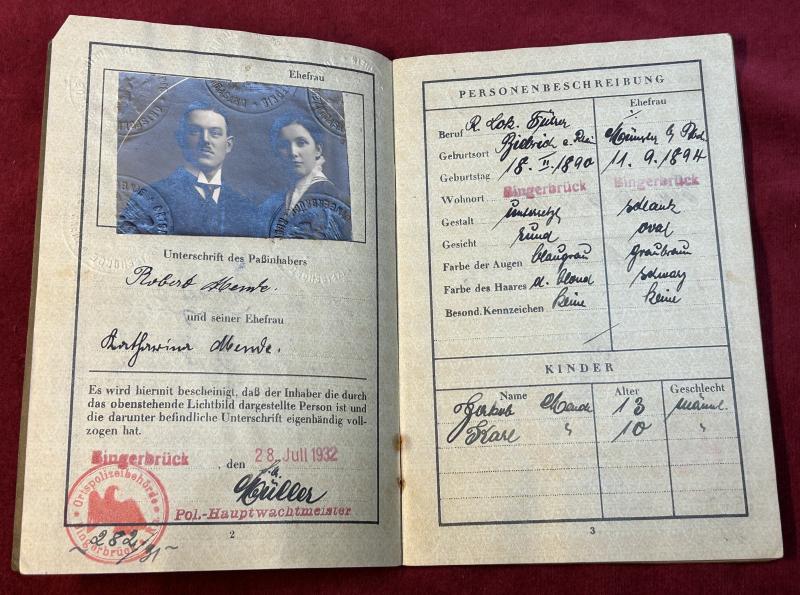 Ehefrau
Unterschrift des Paßinhabers
Robert Mende.
und seiner Ehefrau
Katharina Mende.
Es wird hiermit bescheinigt, daß der Inhaber die durch
das obenstehende Lichtbild dargestellte Person ist und
die darunter befindliche Unterschrift eigenhändig voll-
zogen hat.
Bingerbrück, den 28. Juli 1932
Müller
Pol.-Hauptwachtmeister
Ortspolizeibehörde
Bingerbrück
2
PERSONENBESCHREIBUNG
Ehefrau
Beruf R. Lok. Führer
Geburtsort
Geburtstag 18. II. 1890 11. 9. 1894
Wohnort Bingerbrück Bingerbrück
Gestalt untersetzt schlank
Gesicht rund oval
Farbe der Augen blaugrau graubraun
Farbe des Haares d. blond schwarz
Besond. Kennzeichen keine keine
KINDER
Name Alter Geschlecht
Jakob Mende 13 männl.
Karl " 10 "
3